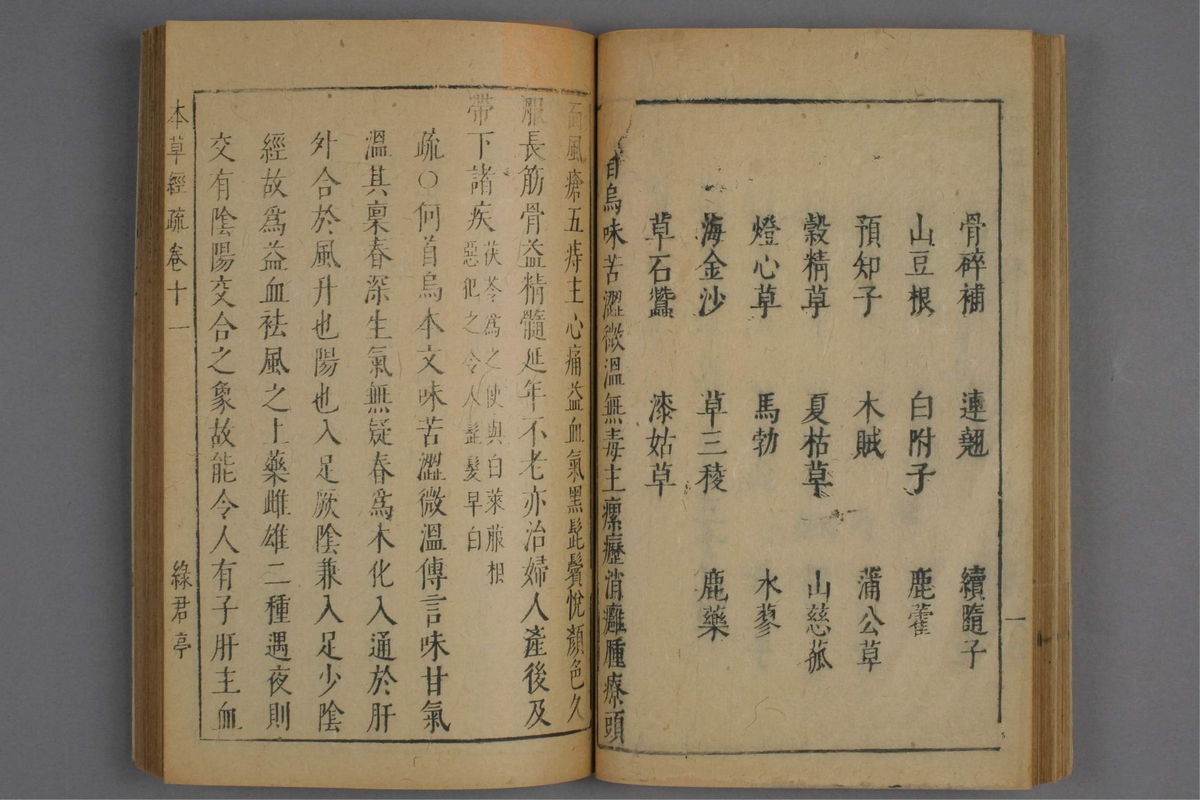 骨碎補　連翹　續隨子
山豆根　白附子　鹿藿
預知子　木賊　蒲公草
穀精草　夏枯草　山慈菰
燈心草　馬勃　水蓼
海金沙　草三稜　鹿藥
草石蠶　漆姑草
首烏味苦澀微溫無毒主瘰癧消癰腫療頭
面風瘡五痔主心痛益血氣黑髭鬢悅顏色久
服長筋骨益精髓延年不老亦治婦人產後及
帶下諸疾茯苓為之使與白萊菔相
惡犯之令人髭髮早白
疏○何首烏本文味苦澀微溫傳言味甘氣
溫其稟春深生氣無疑春爲木化入通於肝
外合於風升也陽也入足厥陰兼入足少陰
經故爲益血祛風之上藥雌雄二種遇夜則
交有陰陽交合之象故能令人有子肝主血
本草經疏　卷十一　綠君亭
一